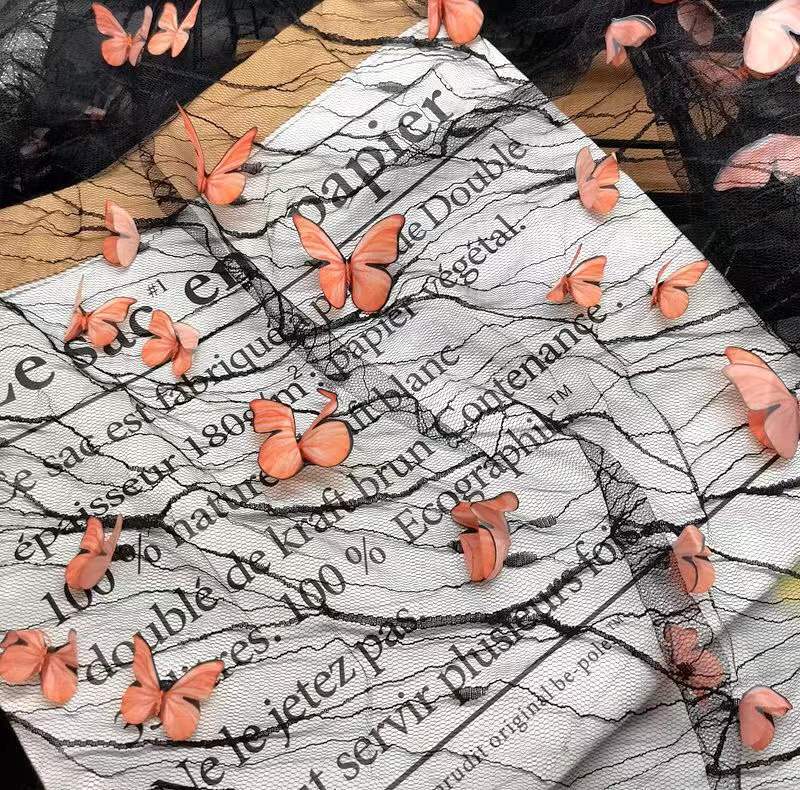 Le sac en papier
#1
Ce sac est fabriqué de Double
épaisseur 180g/m²: papier végétal.
100 % naturel kraft blanc
doublé de kraft brun Contenance.
litres. 100 % Ecographix™
Ne le jetez pas
servir plusieurs fois
original be-pole™